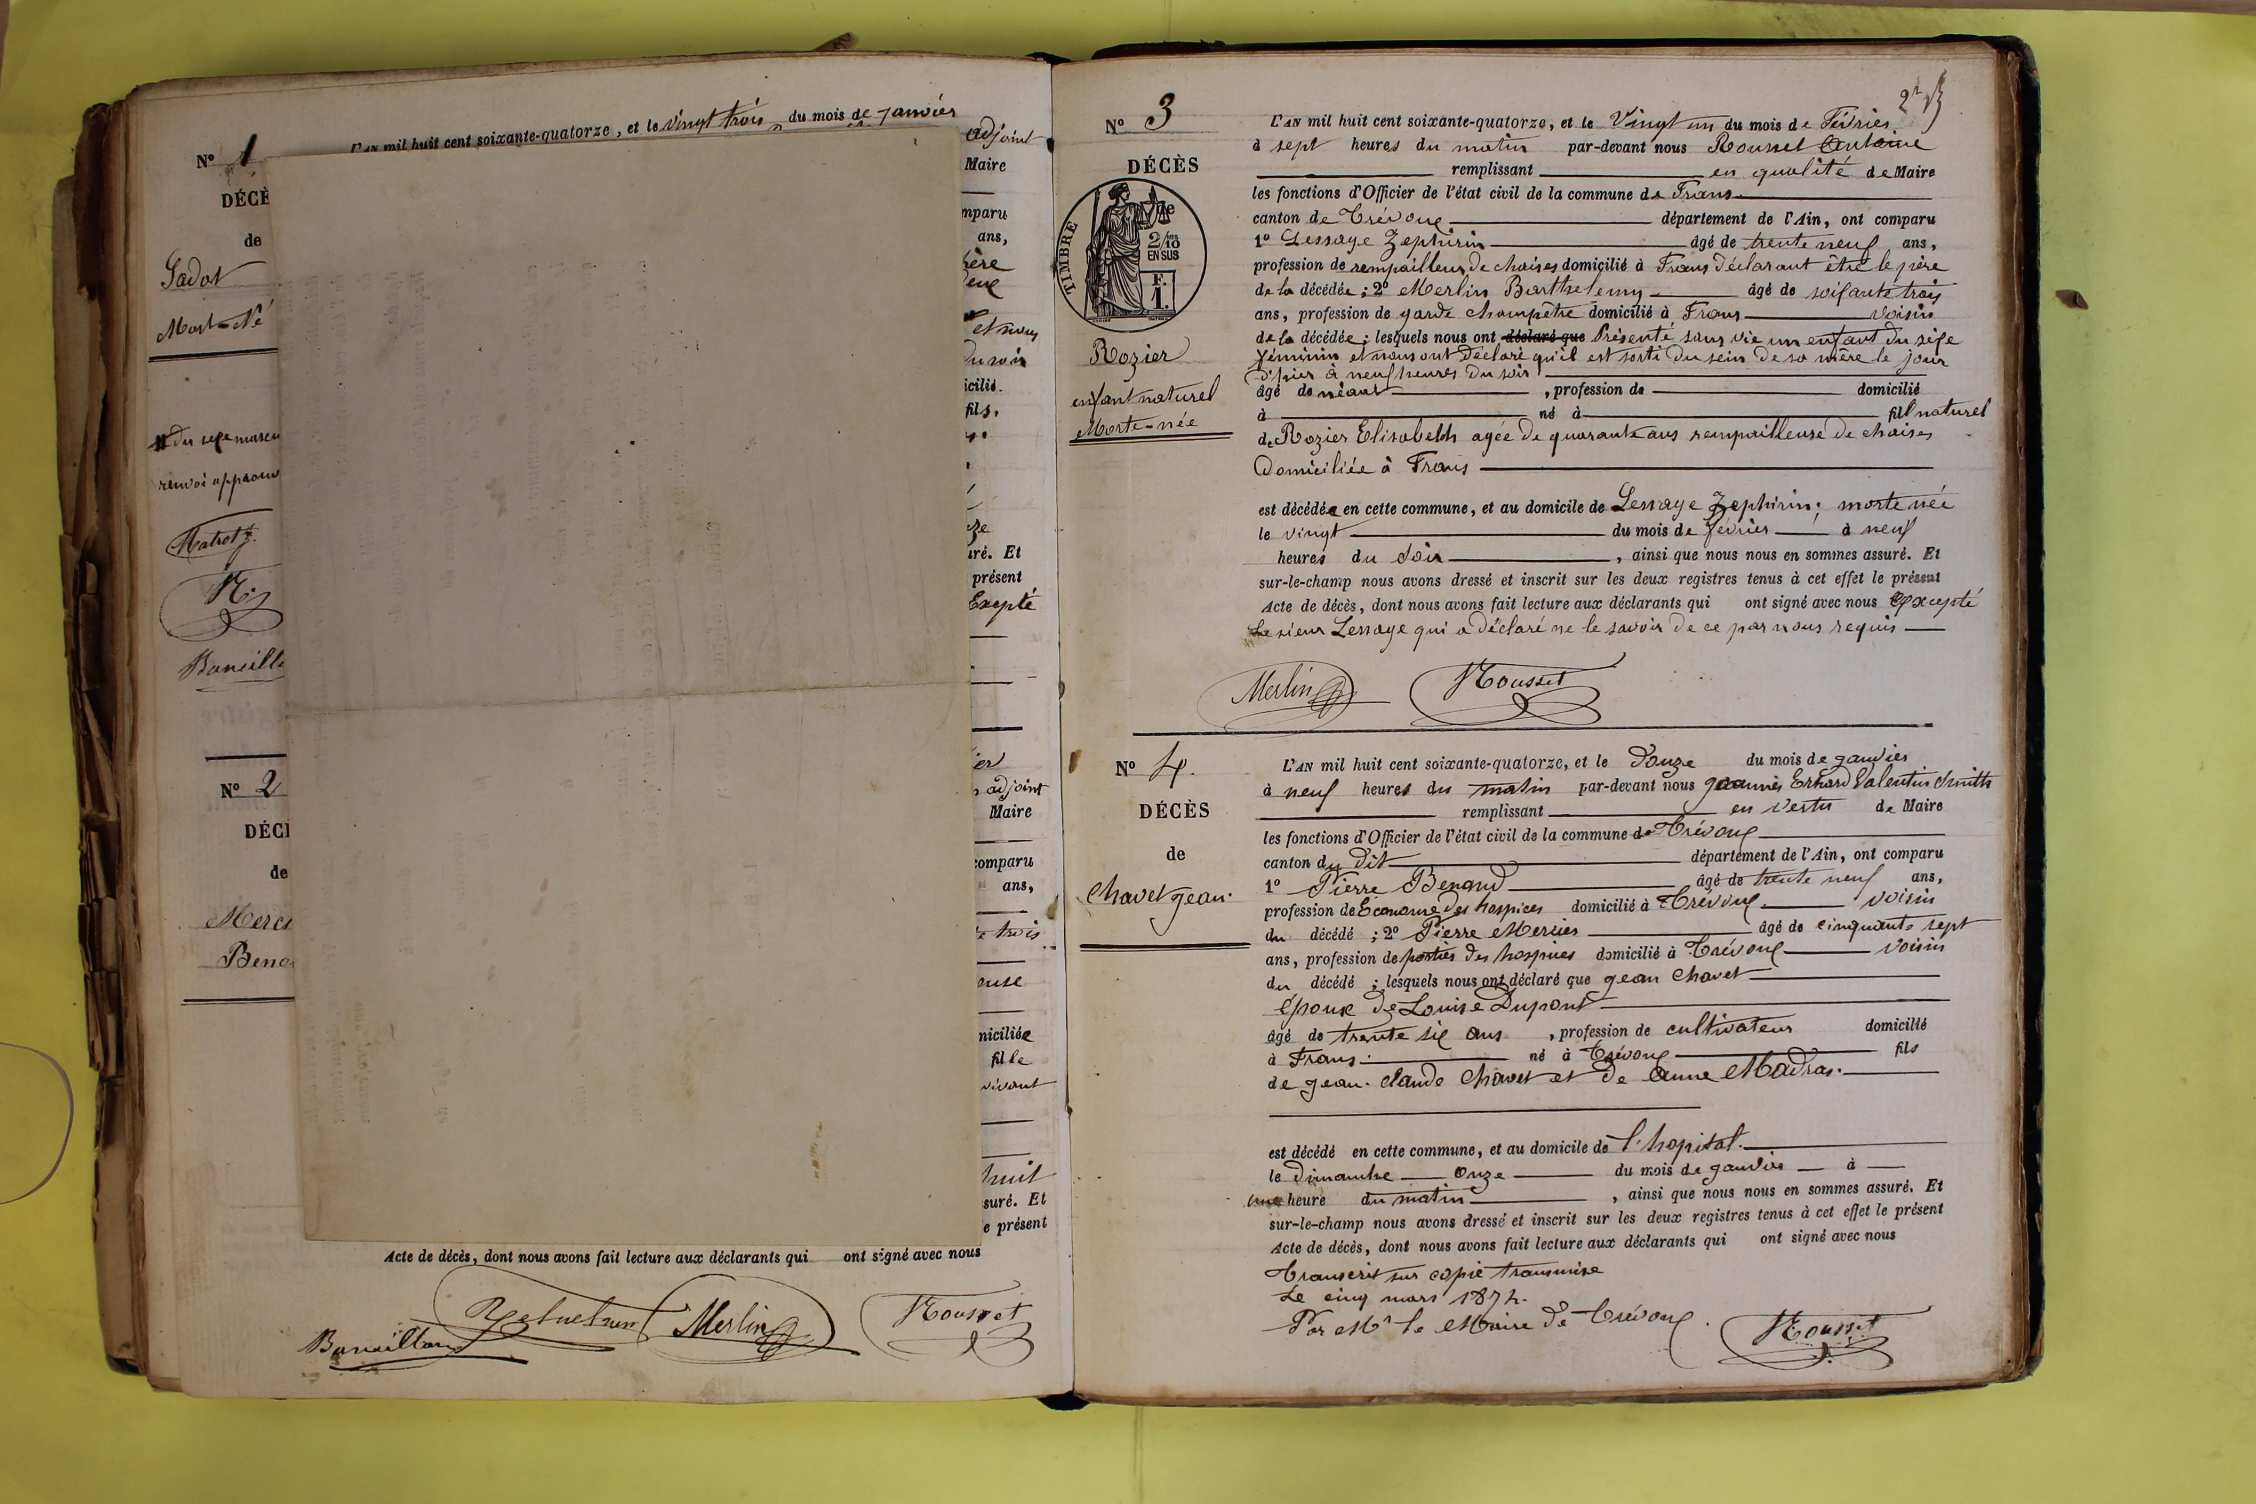 L'AN mil huit cent soixante-quatorze, et le vingt trois du mois de Janvier
adjoint
Nº 1
Maire
DÉCÈ
de
Sadot
Mort-Né
mparu
ans,
et nous
du soir
icilié.
fils,
# du sexe mascu
renvoi approuv
uré. Et
présent
Excepté
Nº 2
adjoint
Maire
DÉCÈ
de
comparu
ans,
Merci
Beno
trois
niciliée
fille
vivant
huit
suré. Et
e présent
Acte de décès, dont nous avons fait lecture aux déclarants qui ont signé avec nous
Merlin Rousset
Nº 3
DÉCÈS
de
TIMBRE
2/10
EN SUS
F.
1.
Rozier
enfant naturel
Morte-née
L'AN mil huit cent soixante-quatorze, et le Vingt un du mois de Février
à sept heures du matin par-devant nous Rousset Antoine
remplissant en qualité de Maire
les fonctions d'Officier de l'état civil de la commune de Frans
canton de Trévoux département de l'Ain, ont comparu
1º Lessaye Zephirin âgé de trente neuf ans,
profession de rempailleur de chaises domicilié à Frans déclarant être le père
de la décédée; 2º Merlin Barthelemy âgé de soixante trois
ans, profession de garde champêtre domicilié à Frans voisin
de la décédée; lesquels nous ont déclaré que Présenté sans vie un enfant du sexe
féminin et nous ont déclaré qu'il est sorti du sein de sa mère le jour
d'hier à neuf heures du soir
âgé de néant, profession de domicilié
à né à fill naturel
de Rozier Elisabeth agée de quarante ans rempailleuse de chaises
Domiciliée à Frans
est décédée en cette commune, et au domicile de Lessaye Zephirin; morte née
le vingt du mois de février à neuf
heures du soir, ainsi que nous nous en sommes assuré. Et
sur-le-champ nous avons dressé et inscrit sur les deux registres tenus à cet effet le présent
Acte de décès, dont nous avons fait lecture aux déclarants qui ont signé avec nous Excepté
Le sieur Lessaye qui a déclaré ne le savoir de ce par nous requis
Merlin Rousset
Nº 4.
DÉCÈS
de
Chavet gean.
L'AN mil huit cent soixante-quatorze, et le Douze du mois de ganvier
à neuf heures du matin par-devant nous Erhard Valentin Smith
remplissant en vertu de Maire
les fonctions d'Officier de l'état civil de la commune de Trévoux
canton du dit département de l'Ain, ont comparu
1º Pierre Benand âgé de trente neuf ans,
profession de Econome des hospices domicilié à Trévoux voisin
du décédé; 2º Pierre Mercier âgé de cinquante sept
ans, profession de portier des hospices domicilié à Trévoux voisin
du décédé; lesquels nous ont déclaré que gean Chavet
époux de Louise Dupont
âgé de trente six ans, profession de cultivateur domicilié
à Frans. né à Trévoux fils
de gean. claude Chavet et de Anne Madras.
est décédé en cette commune, et au domicile de l'hopital.
le dimanche onze du mois de ganvier à
une heure du matin, ainsi que nous nous en sommes assuré. Et
sur-le-champ nous avons dressé et inscrit sur les deux registres tenus à cet effet le présent
Acte de décès, dont nous avons fait lecture aux déclarants qui ont signé avec nous
Transcrit sur copie transmise
Le cinq mars 1874.
Par Mr le Maire de Trévoux.
Rousset